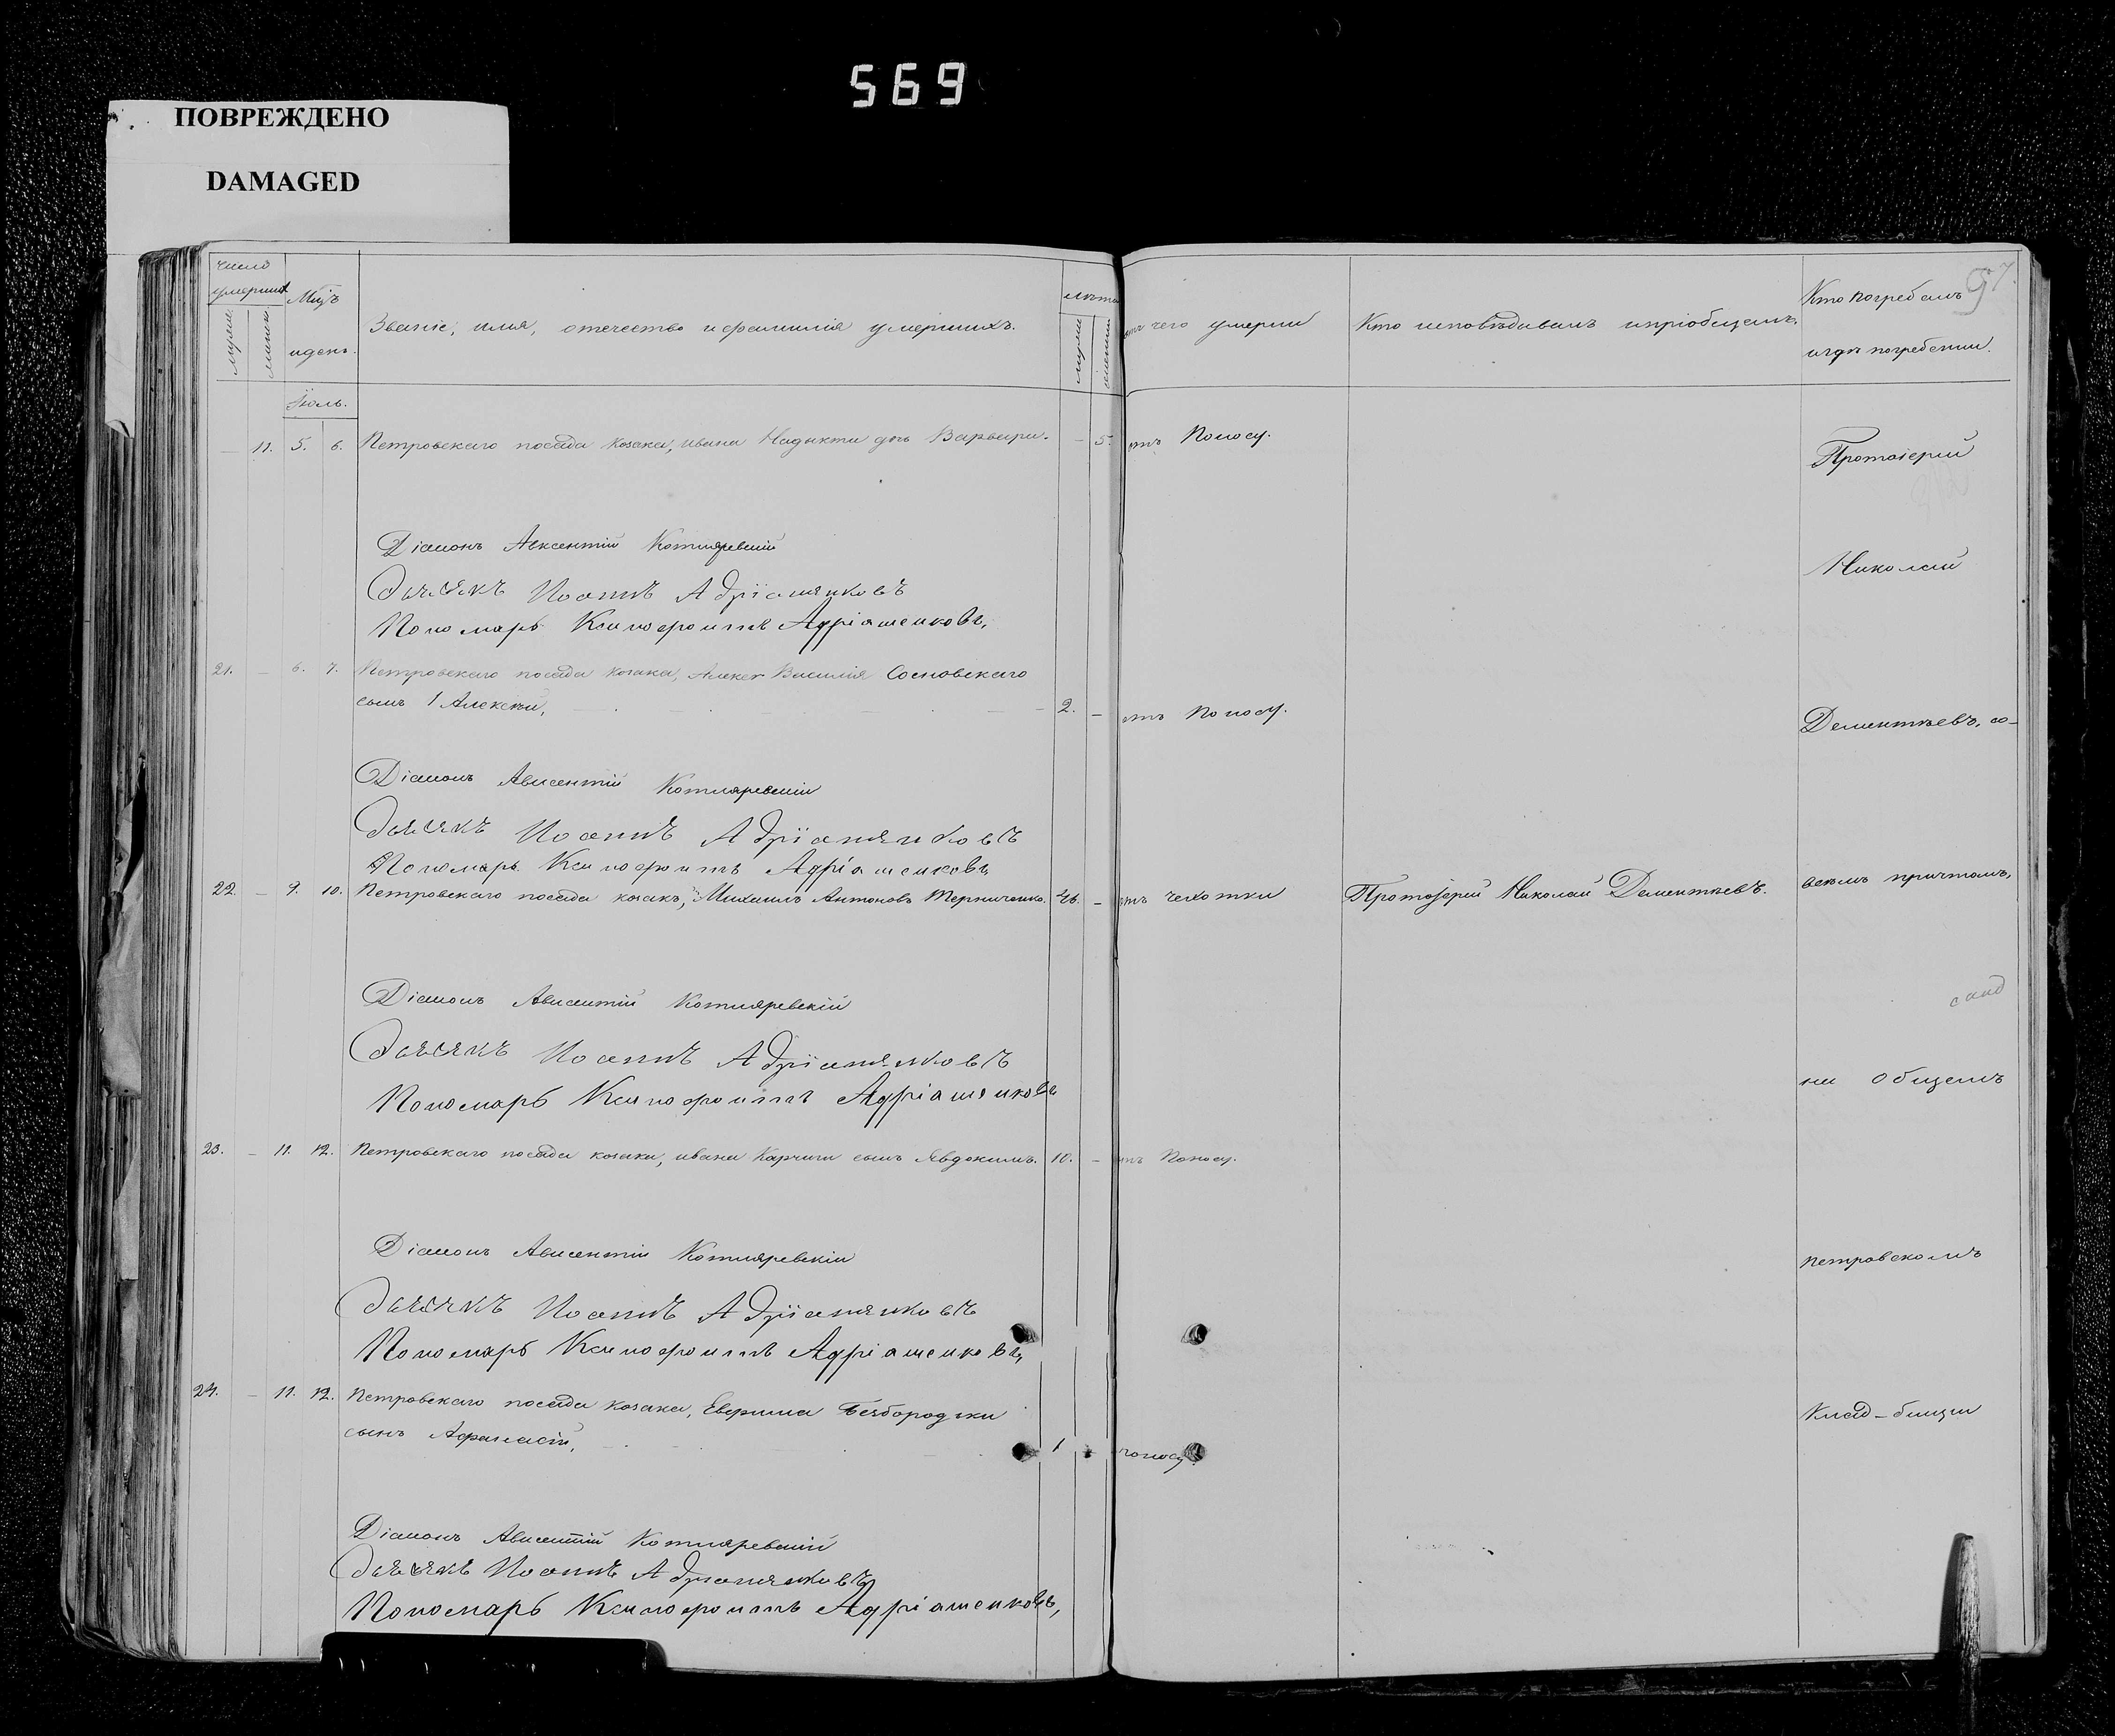 569
ПОВРЕЖДЕНО
DAMAGED
97.
число умершихъ
Мцъ и день.
Званіе, имя, отечество и фамилія умершихъ.
лѣта
отъ чего умерли
Кто исповѣдывалъ и пріобщалъ.
Кто погребалъ и гдѣ погребенны.
мужск. женск.
мужск. женск.
Іюль.
— 11. 5. 6. Петровскаго посада козака, Ивана дчь Варвара. — 5. отъ Поносу.
Протоіерей
Діаконъ Авксентій Котляревскій
Николай
Дьячекъ Иоаннъ Адріяшенковъ
Пономарь Ксинофонтъ Адріашенковъ,
21. — 6. 7. Петровскаго посада козака, Василія Сосновскаго
сынъ Алексѣй, 2. — отъ Поносу.
Дементьевъ, со-
Діаконъ Авксентій Котляревскій
Дьячекъ Иоаннъ Адріяшенковъ
Пономарь Ксинофонтъ Адріашенковъ
22. — 9. 10. Петровскаго посада козакъ, Михаилъ Антоновъ Терниченко. 46. — отъ чехотки Протоіерей Николай Дементьевъ.
всемъ причтомъ,
Діаконъ Авксентій Котляревскій
Дьячекъ Иоаннъ Адріяшенковъ
на общемъ
Пономарь Ксинофонтъ Адріашенковъ
23. — 11. 12. Петровскаго посада козака, Ивана Карчиги сынъ Явдокимъ. 10. — отъ Поносу.
Діаконъ Авксентій Котляревскій
петровскомъ
Дьячекъ Иоаннъ Адріяшенковъ
Пономарь Ксинофонтъ Адріашенковъ,
24. — 11. 12. Петровскаго посада козака, Безбородьки
сынъ Афанасій, 1 поносу.
клад-бищи
Діаконъ Авксентій Котляревскій
Дьячекъ Иоаннъ Адріяшенковъ
Пономарь Ксинофонтъ Адріашенковъ,